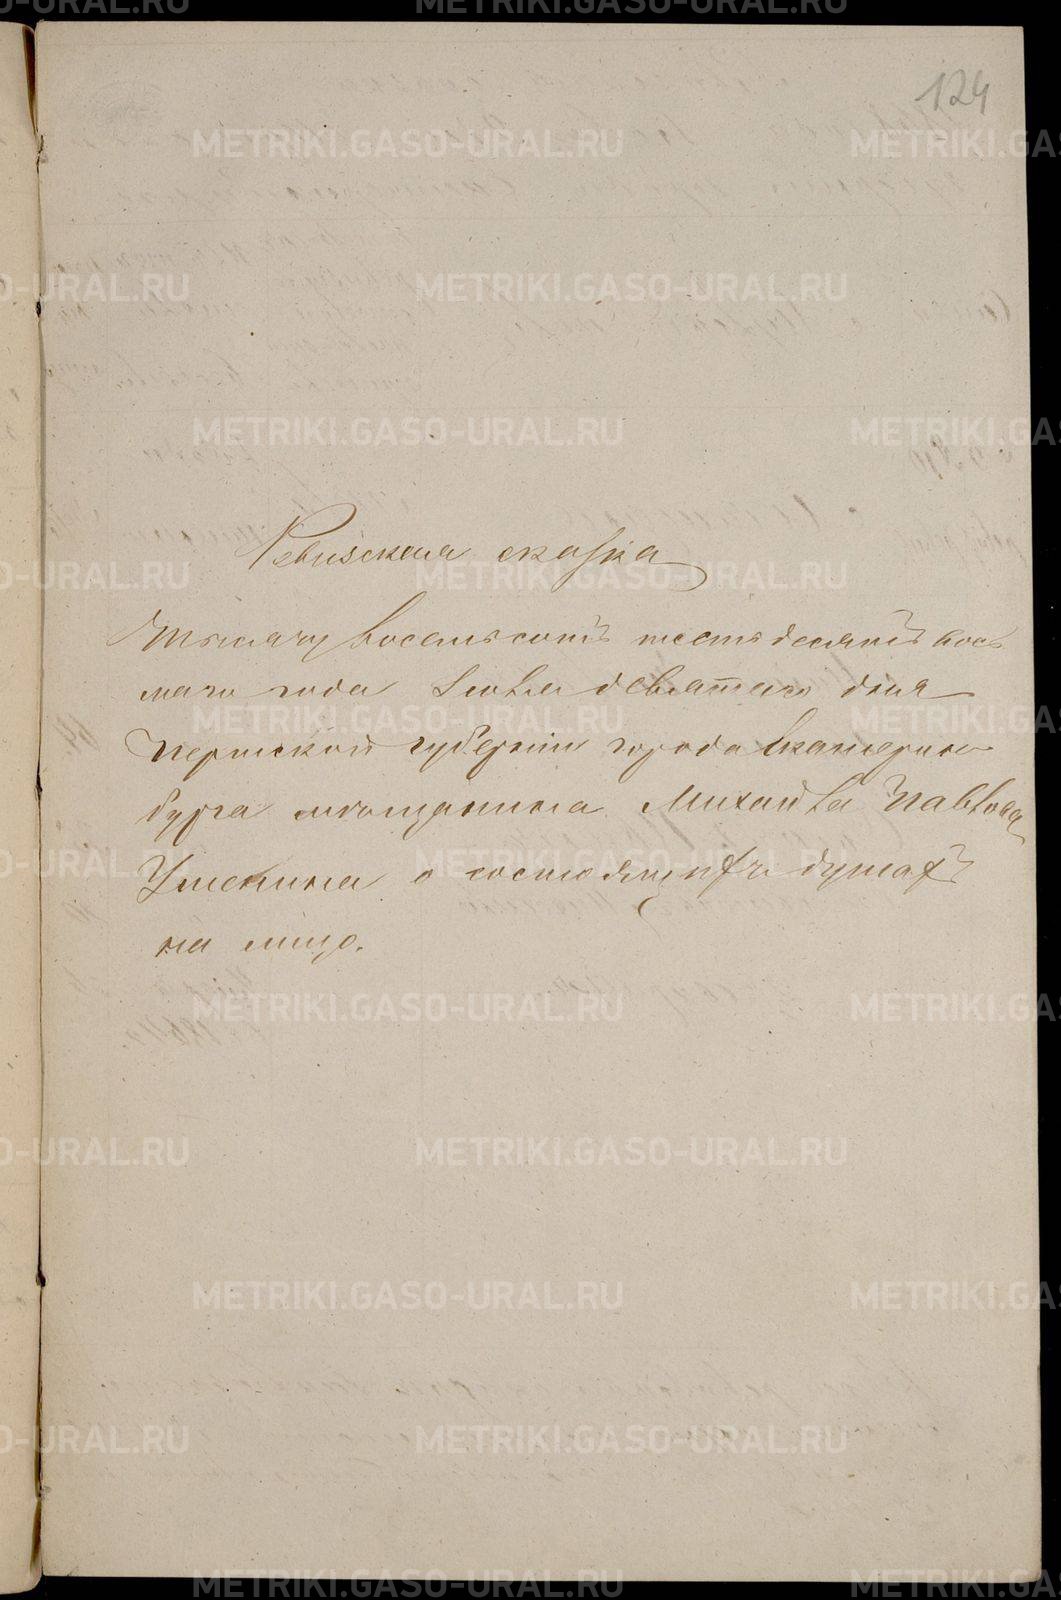 124
Ревизская сказка
Тысячу восемьсотъ шестьдесятъ вось
маго года Iюля девятаго дня
Пермской губернiи города Екатерин
бурга мѣщанина Михаила Павлова
о состоящихъ душахъ
на лицо.
METRIKI.GASO-URAL.RU